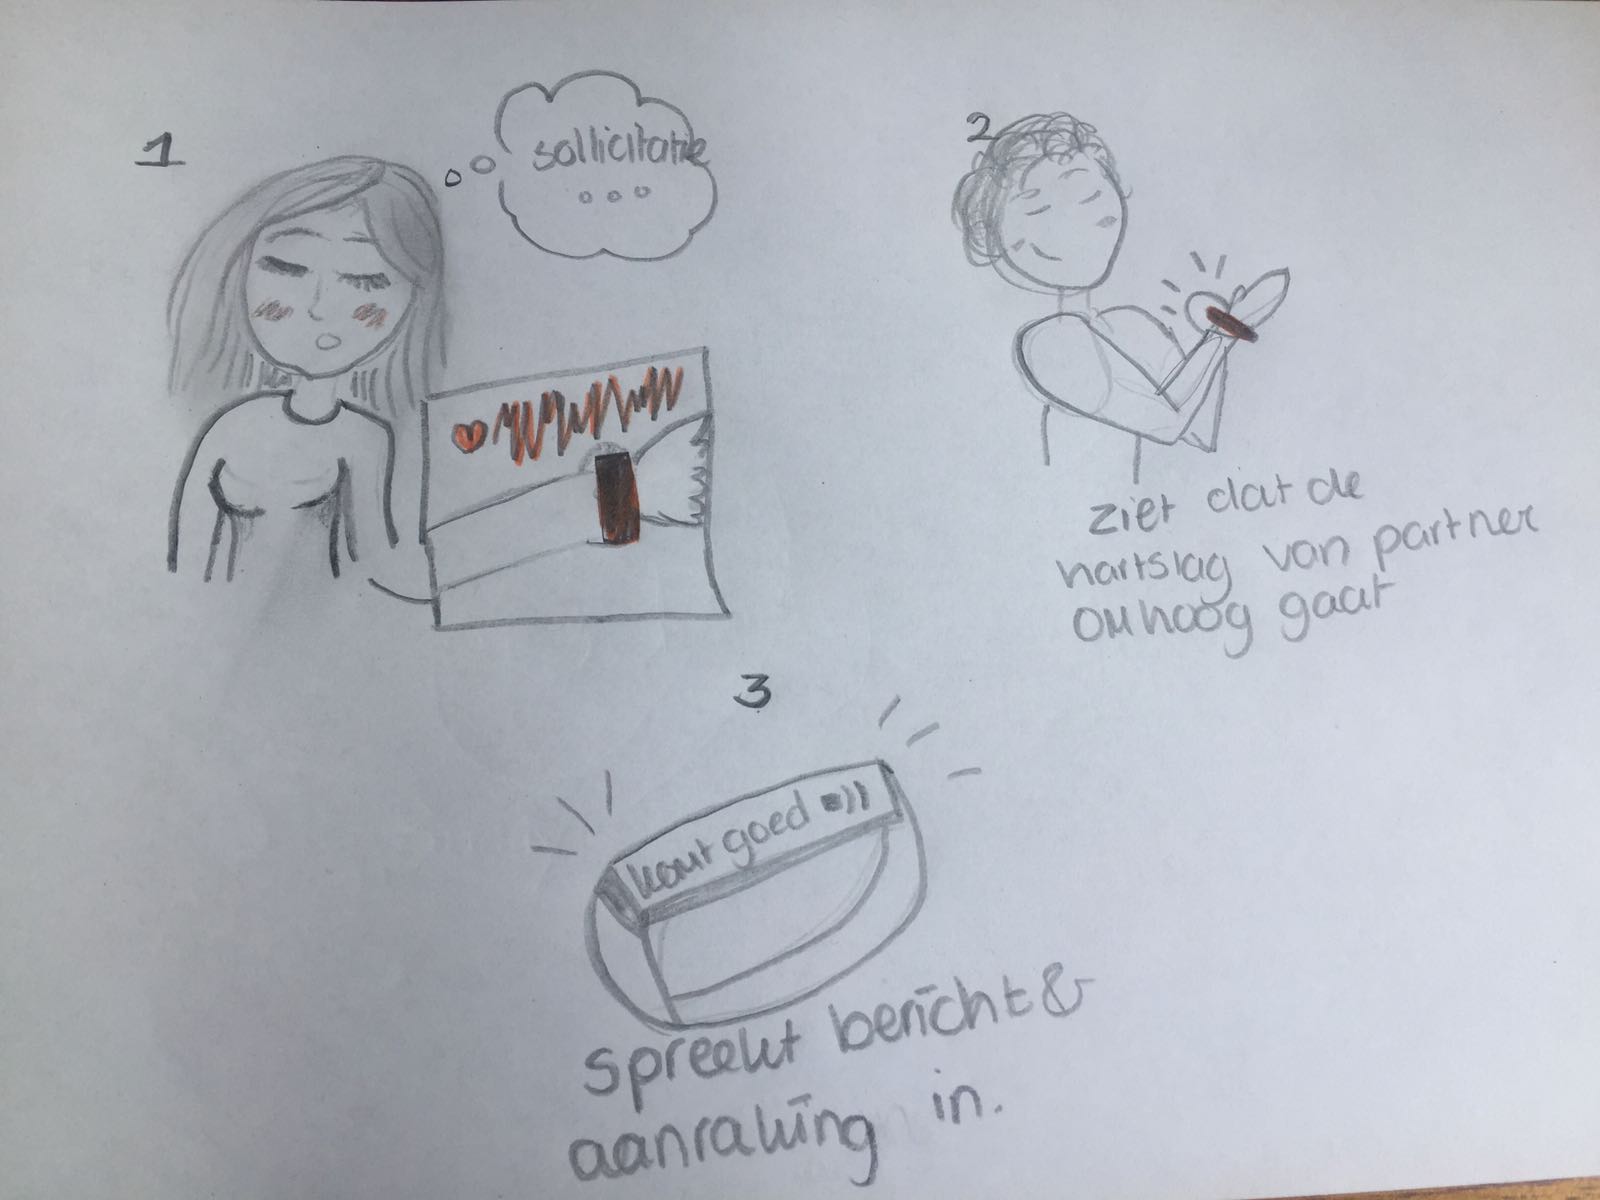 1
sollicitatie
...
2
ziet dat de
hartslag van partner
omhoog gaat
3
komt goed
spreekt bericht &
aanraking in.